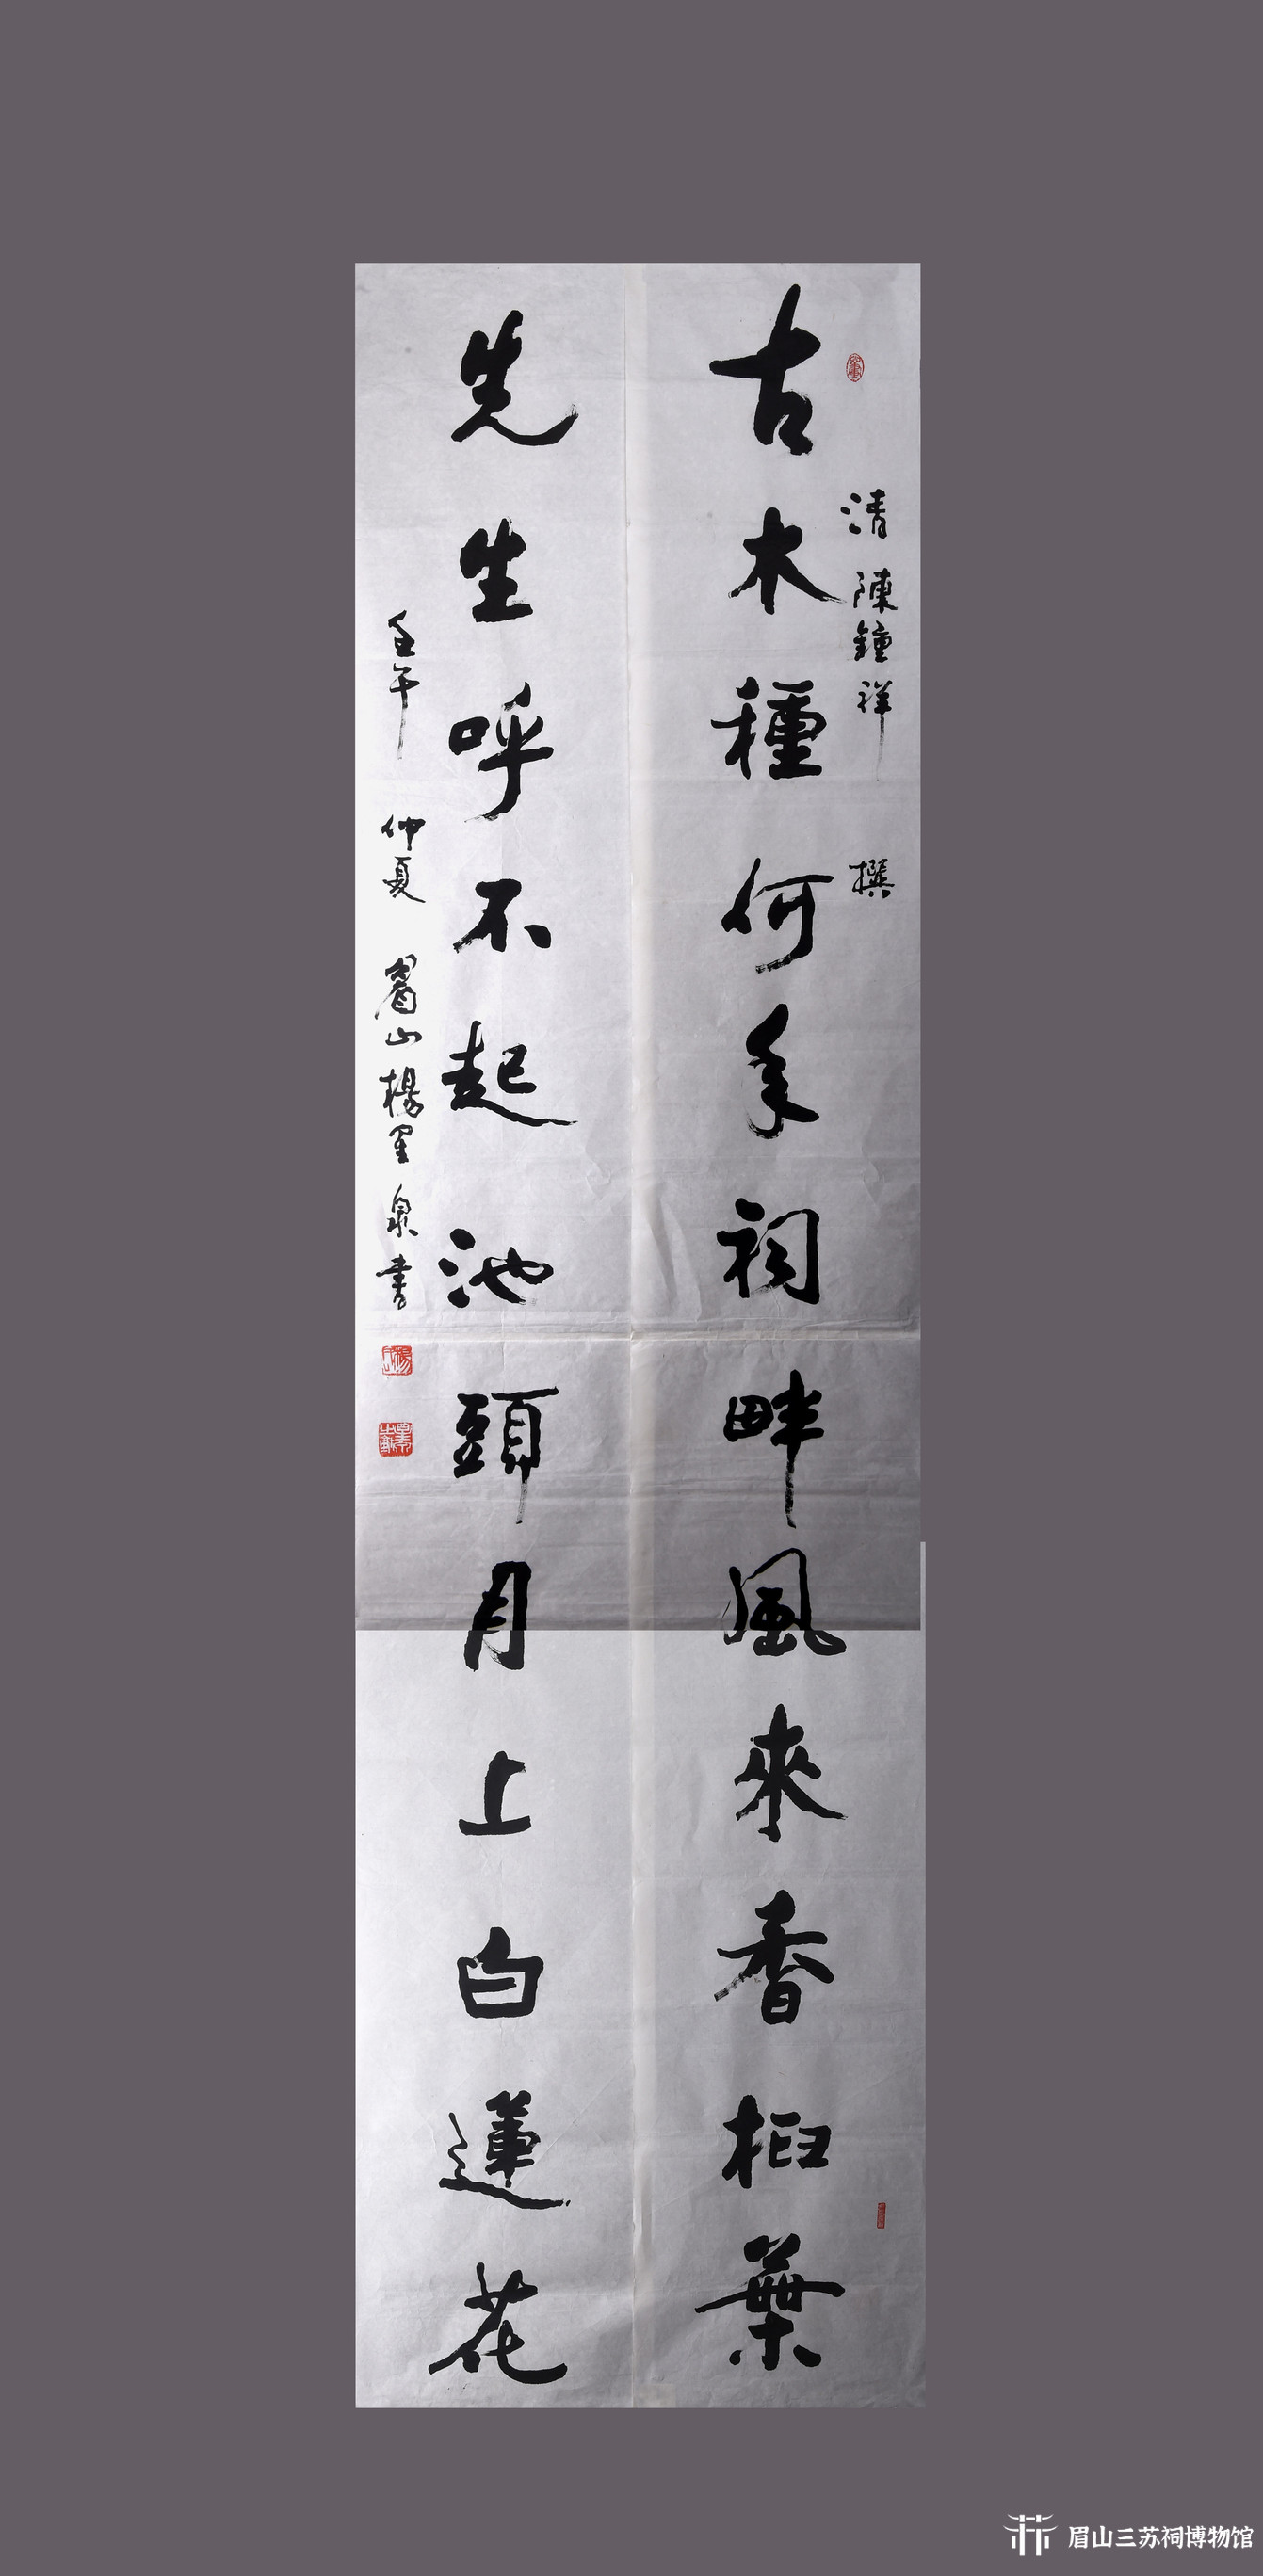 清 陳鐘祥 撰
古木種何年祠畔風來香柏葉
先生呼不起池頭月上白蓮花
壬午 仲夏 眉山楊星泉書
眉山三苏祠博物馆